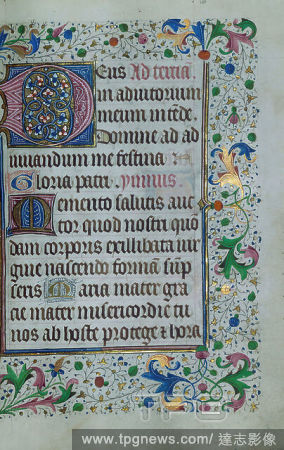 Deus Ad tertiam.
in adiutorium
meum intede.
Domine ad ad
iuuandum me festina
Gloria patri. ymnus.
Memento salutis auc
tor quod nostri quo
dam corporis ex illibata uir
gine nascendo formã sũp
seris Maria mater gra
cie mater misericordie tu
nos ab hoste protege et hora
TPG
www.tpgnews.com/達志影像